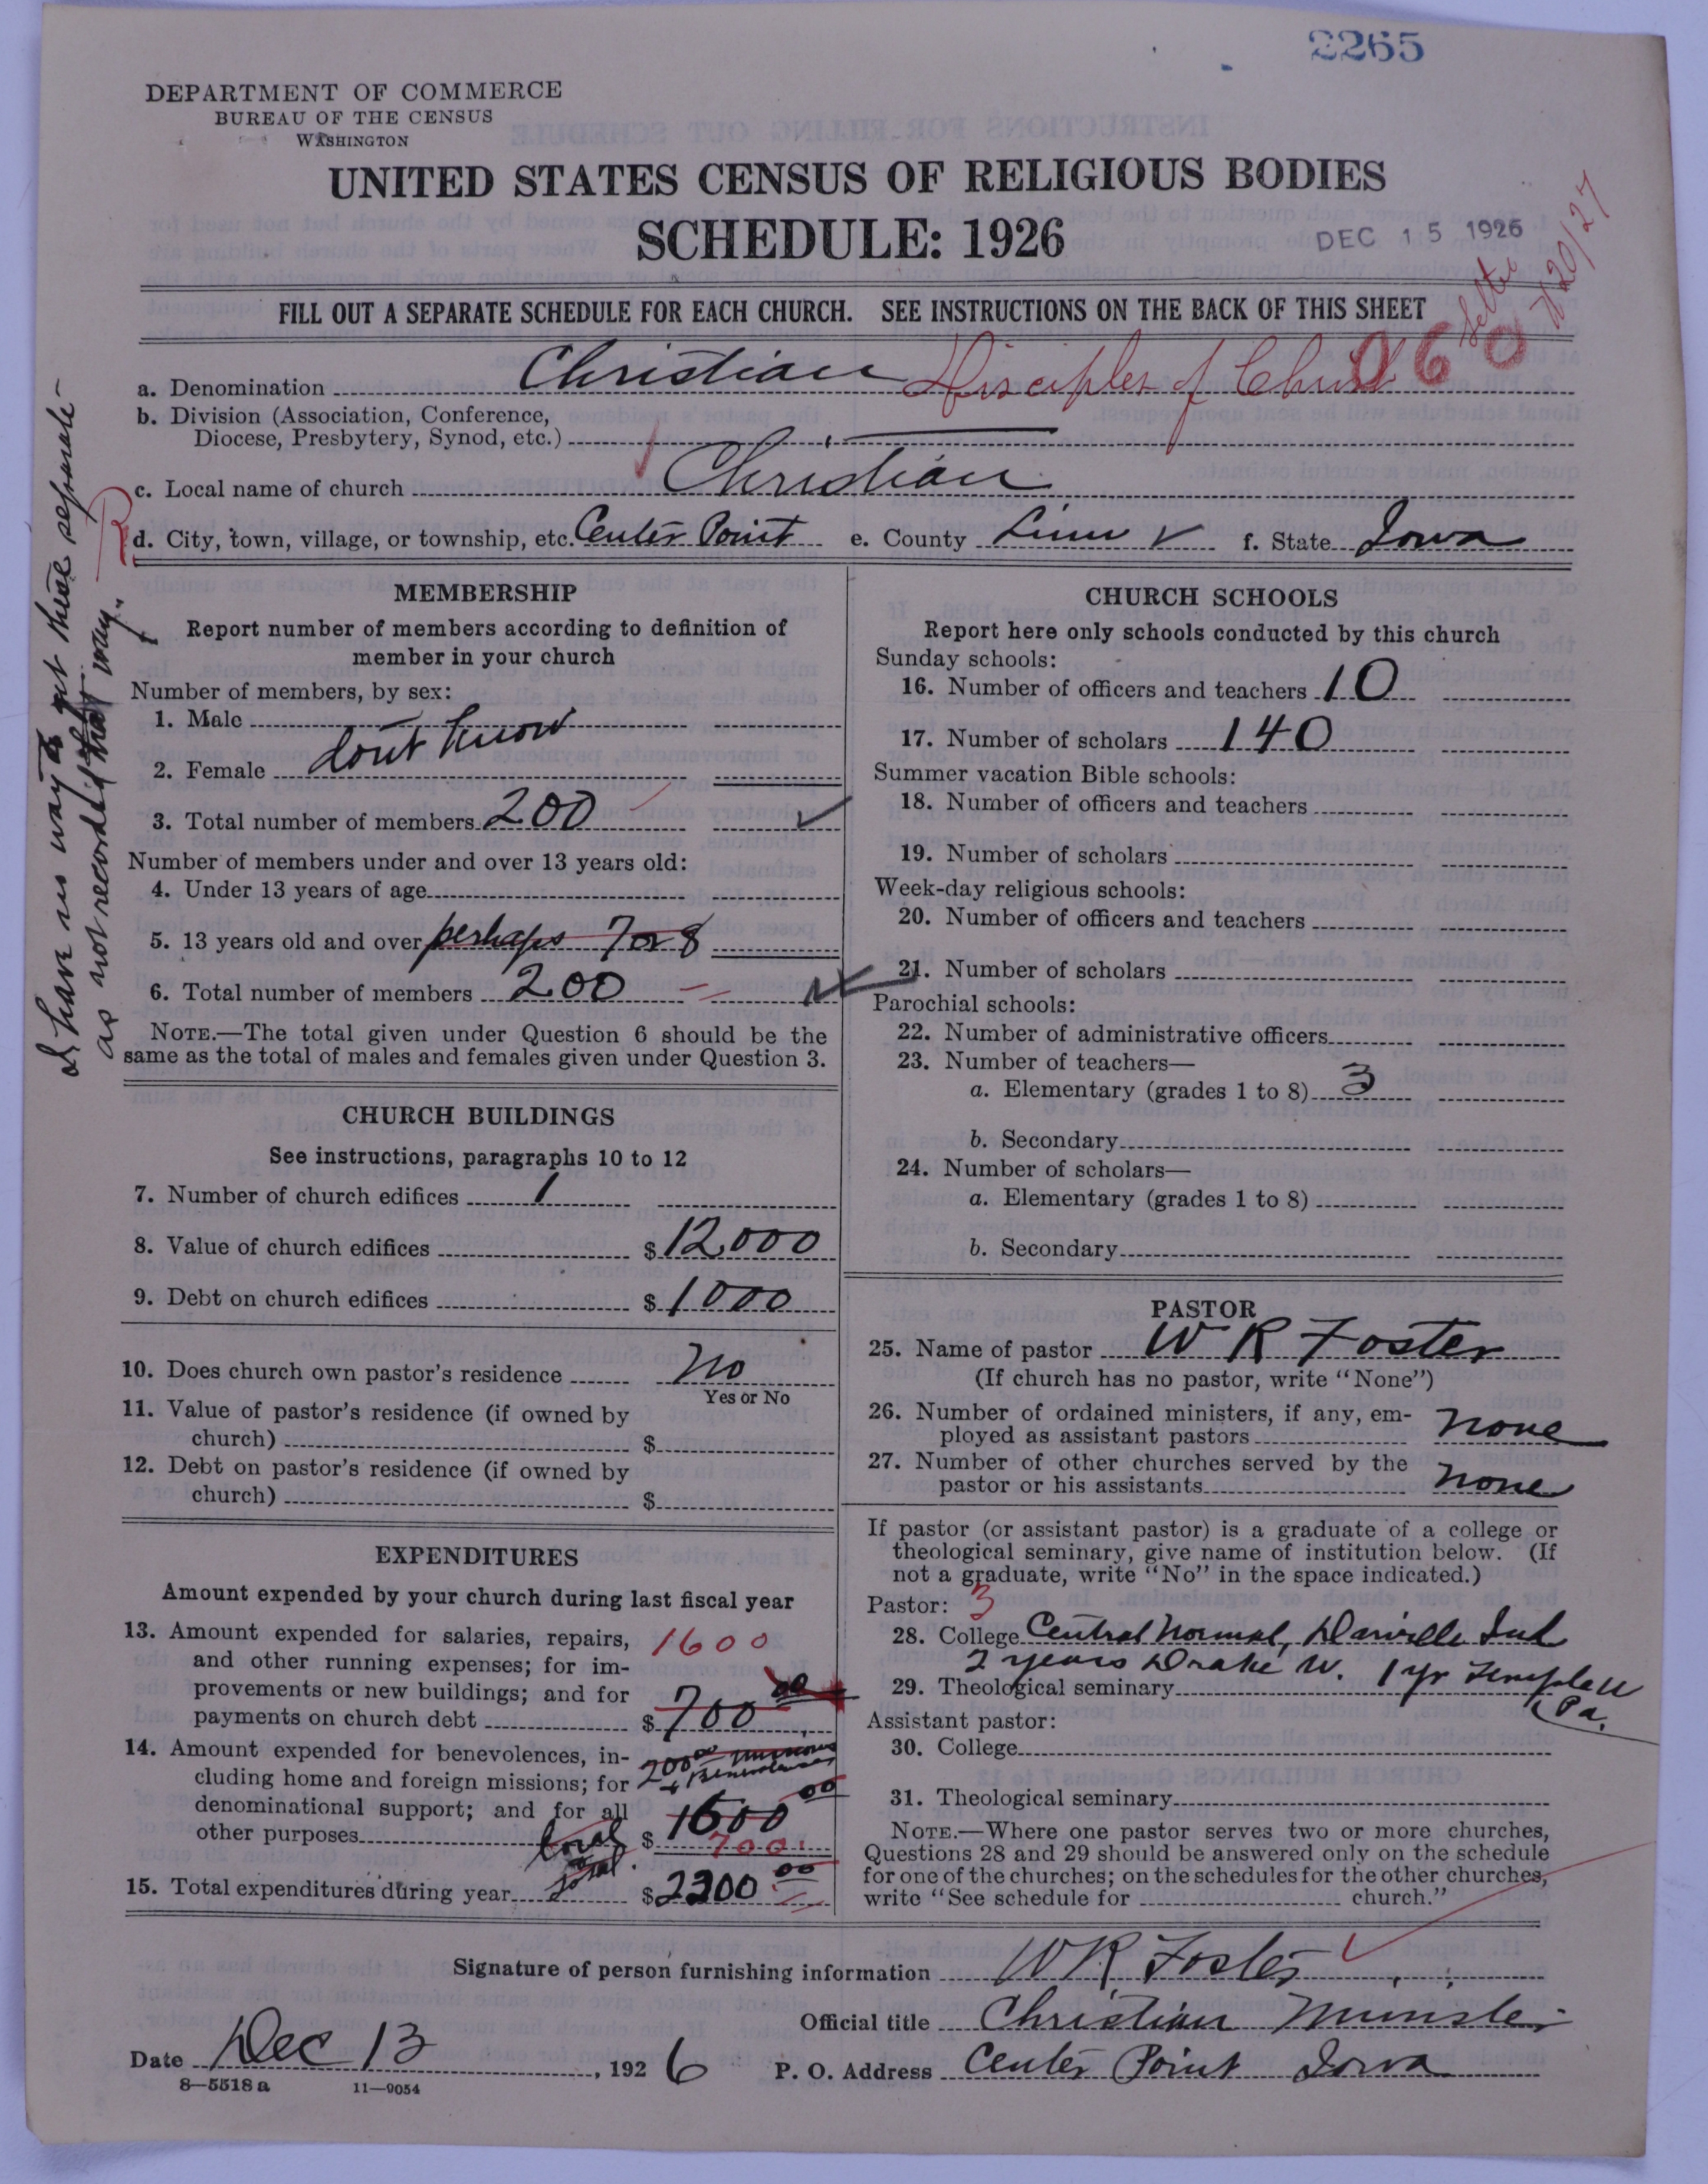 2265
DEPARTMENT OF COMMERCE
BUREAU OF THE CENSUS
WASHINGTON
UNITED STATES CENSUS OF RELIGIOUS BODIES
SCHEDULE: 1926
DEC 15 1926
Letter 7/20/27
FILL OUT A SEPARATE SCHEDULE FOR EACH CHURCH. SEE INSTRUCTIONS ON THE BACK OF THIS SHEET
060
a. Denomination Christian Disciples of Christ
b. Division (Association, Conference,
Diocese, Presbytery, Synod, etc.)
c. Local name of church Christian
R
d. City, town, village, or township, etc. Center Point e. County Linn f. State Iowa
I have no way to get these separate
as not recorded that way.
MEMBERSHIP
Report number of members according to definition of
member in your church
Number of members, by sex:
1. Male
2. Female dont know
3. Total number of members 200
Number of members under and over 13 years old:
4. Under 13 years of age
5. 13 years old and over perhaps 7 or 8
6. Total number of members 200
NOTE.—The total given under Question 6 should be the
same as the total of males and females given under Question 3.
CHURCH BUILDINGS
See instructions, paragraphs 10 to 12
7. Number of church edifices 1
8. Value of church edifices $ 12,000
9. Debt on church edifices $ 1000
10. Does church own pastor's residence No
Yes or No
11. Value of pastor's residence (if owned by
church) $
12. Debt on pastor's residence (if owned by
church) $
EXPENDITURES
Amount expended by your church during last fiscal year
13. Amount expended for salaries, repairs, 1600
and other running expenses; for im-
provements or new buildings; and for
payments on church debt $ 700 00
14. Amount expended for benevolences, in- 200 00 missions
cluding home and foreign missions; for + Benevolences
denominational support; and for all
other purposes local $ 1600 00
700
15. Total expenditures during year total $ 2300 00
CHURCH SCHOOLS
Report here only schools conducted by this church
Sunday schools:
16. Number of officers and teachers 10
17. Number of scholars 140
Summer vacation Bible schools:
18. Number of officers and teachers
19. Number of scholars
Week-day religious schools:
20. Number of officers and teachers
21. Number of scholars
Parochial schools:
22. Number of administrative officers
23. Number of teachers—
a. Elementary (grades 1 to 8) 3
b. Secondary
24. Number of scholars—
a. Elementary (grades 1 to 8)
b. Secondary
PASTOR
25. Name of pastor W R Foster
(If church has no pastor, write "None")
26. Number of ordained ministers, if any, em-
ployed as assistant pastors none
27. Number of other churches served by the
pastor or his assistants none
If pastor (or assistant pastor) is a graduate of a college or
theological seminary, give name of institution below. (If
not a graduate, write "No" in the space indicated.)
Pastor: 3
28. College Central Normal, Danville Ind
2 years Drake U. 1 yr Temple U
29. Theological seminary
Pa.
Assistant pastor:
30. College
31. Theological seminary
NOTE.—Where one pastor serves two or more churches,
Questions 28 and 29 should be answered only on the schedule
for one of the churches; on the schedules for the other churches,
write "See schedule for church."
Signature of person furnishing information W R Foster
Official title Christian Minister
Date Dec 13, 1926 P. O. Address Center Point Iowa
8—5518 a 11—9054